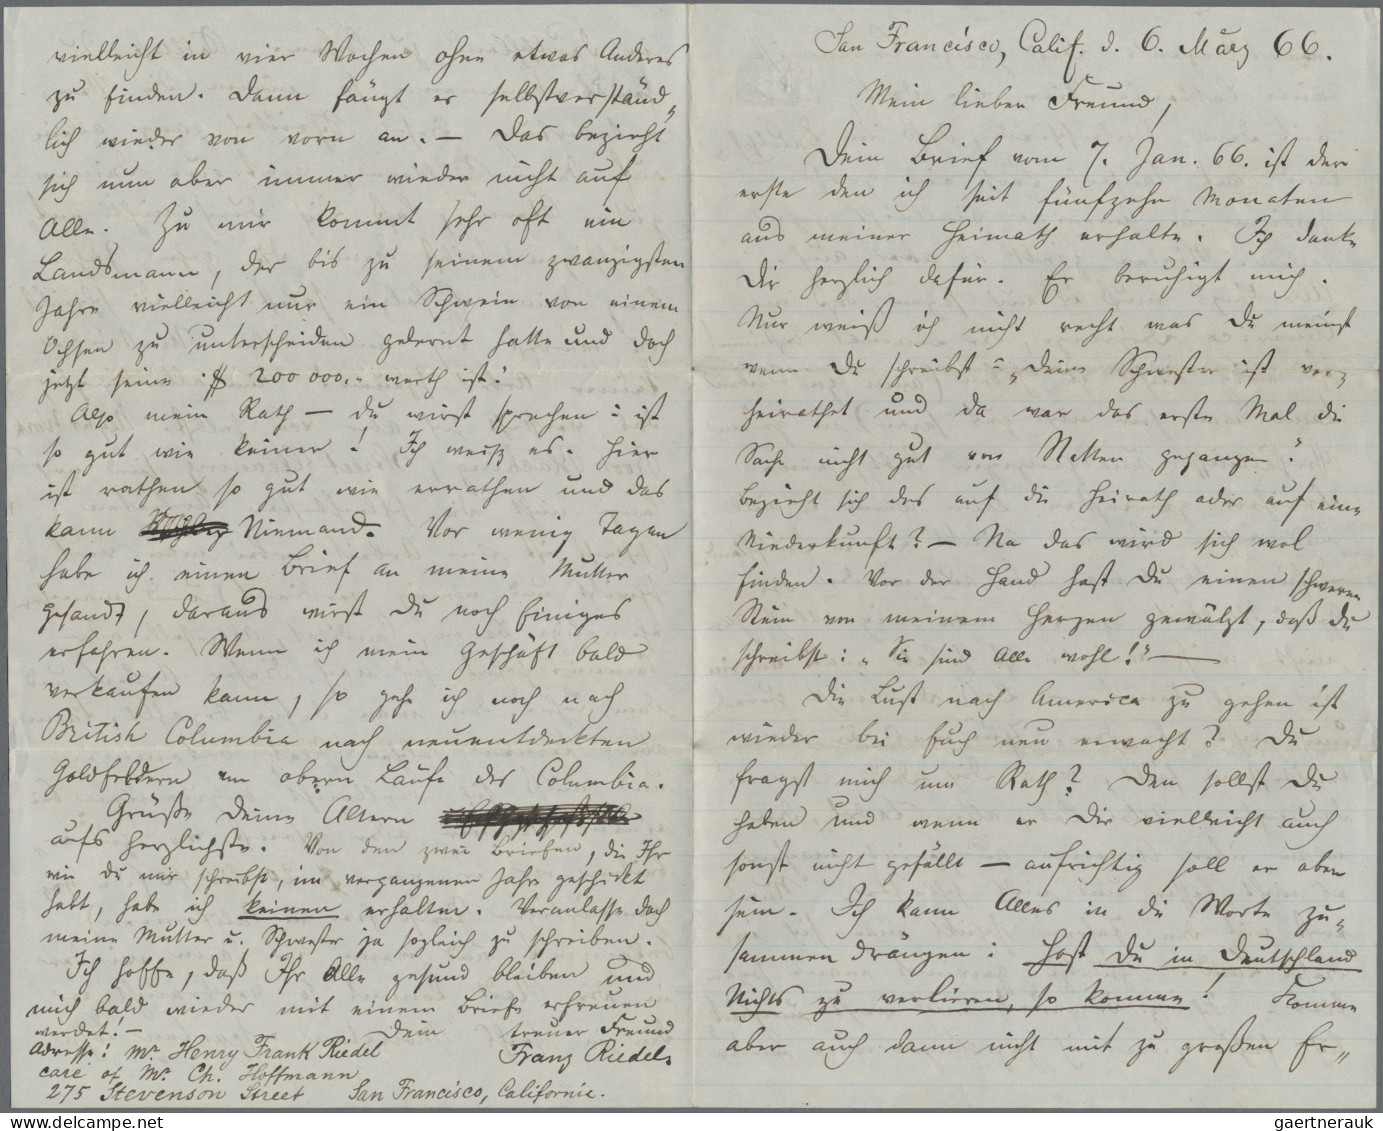 San Francisco, Calif. d. 6. März 66.
Mein lieber Freund,
Dein Brief vom 7. Jan. 66. ist der
erste den ich seit fünfzehn Monaten
aus meiner Heimath erhalte. Ich danke
Dir herzlich dafür. Er beruhigt mich.
Nur weiß ich nicht recht was Du meinst
wenn Du schreibst: „Deine Schwester ist ver-
heirathet und da war das erste Mal die
Sache nicht gut von Statten gegangen".
Bezieht sich das auf die Heirath oder auf eine
Niederkunft? — Na das wird sich wol
finden. Vor der Hand hast Du einen schweren
Stein von meinem Herzen gewälzt, daß Du
schreibst: „Sie sind Alle wohl!" —
Die Lust nach America zu gehen ist
wieder bei Euch neu erwacht? Du
fragst mich um Rath? Den sollst Du
haben und wenn er Dir vielleicht auch
sonst nicht gefällt — aufrichtig soll er aber
sein. Ich kann Alles in die Worte zu-
sammen drängen: Hast Du in Deutschland
Nichts zu verlieren, so komme! Komme
aber auch dann nicht mit zu großen Er„
vielleicht in vier Wochen ohne etwas Anderes
zu finden. Dann fängt er selbstverständ„
lich wieder von vorn an. — Das bezieht
sich nun aber immer wieder nicht auf
Alle. Zu mir kommt sehr oft ein
Landsmann, der bis zu seinem zwanzigsten
Jahre vielleicht nur ein Schwein von einem
Ochsen zu unterscheiden gelernt hatte und doch
jetzt seine $ 200 000.- werth ist.
Also mein Rath — du wirst sprechen: ist
so gut wie keiner! Ich weiß es. Hier
ist rathen so gut wie errathen und das
kann Niemand. Vor wenig Tagen
habe ich einen Brief an meine Mutter
gesandt, daraus wirst Du noch Einiges
erfahren. Wenn ich mein Geschäft bald
verkaufen kann, so gehe ich noch nach
British Columbia nach neuentdeckten
Goldfeldern am obern Laufe des Columbia.
Grüße Deine Altern
aufs herzlichste. Von den zwei Briefen, die Ihr
wie Du mir schreibst, im vergangenen Jahre geschickt
habt, habe ich keinen erhalten. Veranlasse doch
meine Mutter u. Schwester ja sogleich zu schreiben.
Ich hoffe, daß Ihr Alle gesund bleiben und
mich bald wieder mit einem Briefe erfreuen
werdet! — Dein treuer Freund
Franz Riedel.
Adresse: Mr. Henry Frank Riedel
care of Mr. Ch. Hoffmann
275 Stevenson Street San Francisco, Californie.
gaertnerauk